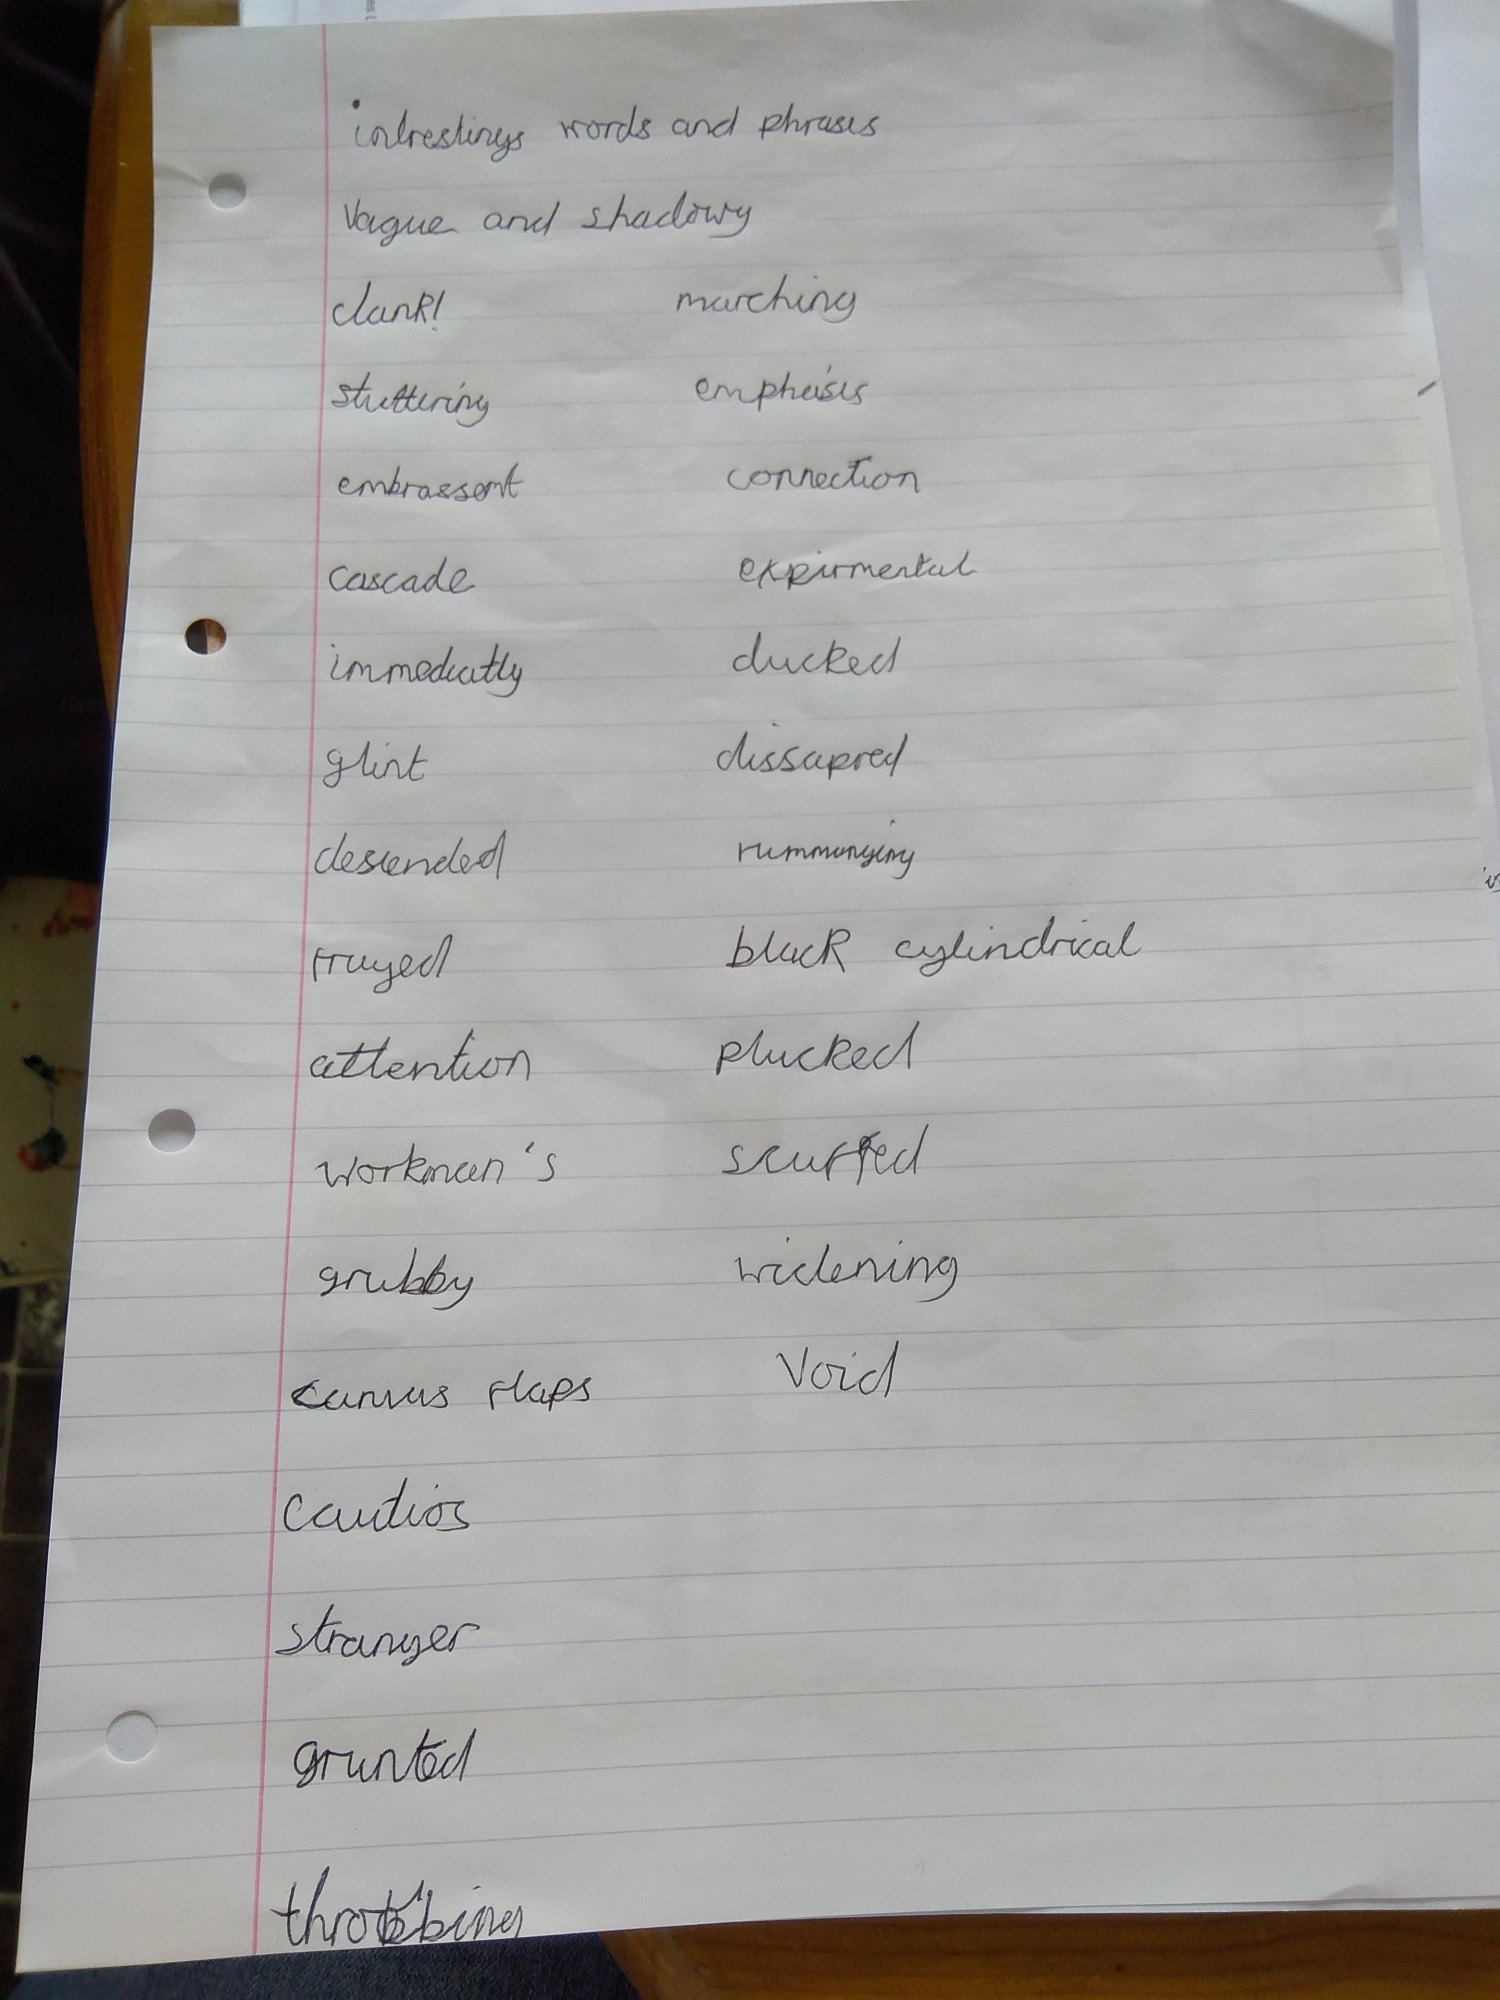 intrestings words and phrases
Vague and shadowy
clank! marching
stuttering emphasis
embrassent connection
cascade expirmental
immediatly ducked
glint dissapred
descended rummanging
frayed black cylindrical
attention plucked
workman's scuffed
grubby widening
canvas flaps Void
Cautios
stranger
grunted
throbbing